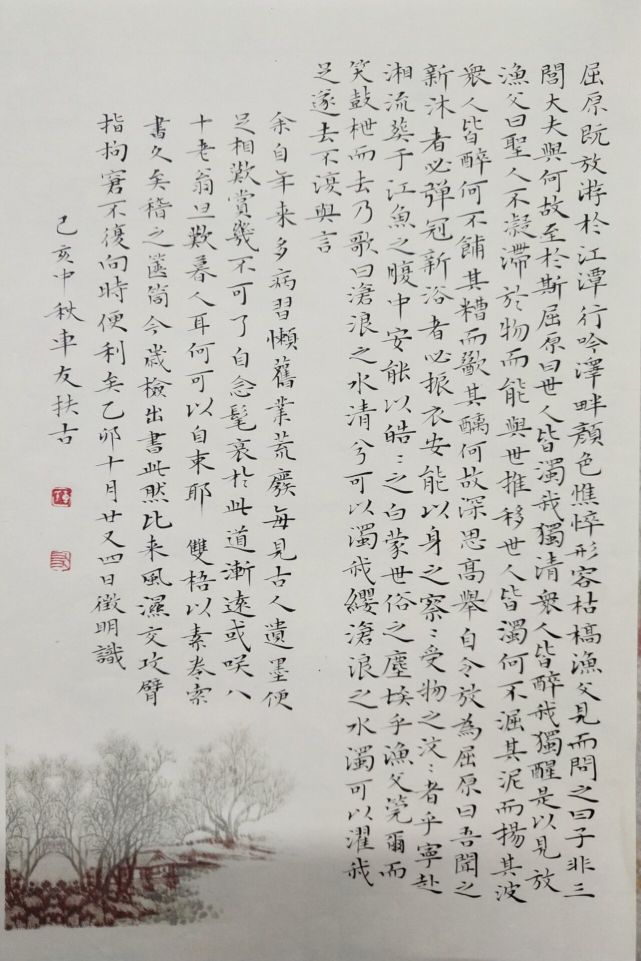 屈原既放游於江潭行吟澤畔顏色憔悴形容枯槁漁父見而問之曰子非三
閭大夫與何故至於斯屈原曰世人皆濁我獨清衆人皆醉我獨醒是以見放
漁父曰聖人不凝滯於物而能與世推移世人皆濁何不淈其泥而揚其波
衆人皆醉何不餔其糟而歠其醨何故深思高舉自令放為屈原曰吾聞之
新沐者必彈冠新浴者必振衣安能以身之察〻受物之汶〻者乎寧赴
湘流葬于江魚之腹中安能以皓〻之白蒙世俗之塵埃乎漁父莞爾而
笑鼓枻而去乃歌曰滄浪之水清兮可以濁我纓滄浪之水濁可以濯我
足遂去不復與言
余自年来多病習懶舊業荒廢每見古人遺墨便
足相歎賞幾不可了自念髦衰於此道漸遠或咲八
十老翁旦歎暮人耳何可以自束耶 雙梧以素卷索
書久矣稽之篋笥今歲檢出書此然比来風濕交攻臂
指拘窘不復向時便利矣乙卯十月廿又四日徵明識
己亥中秋車友扶古